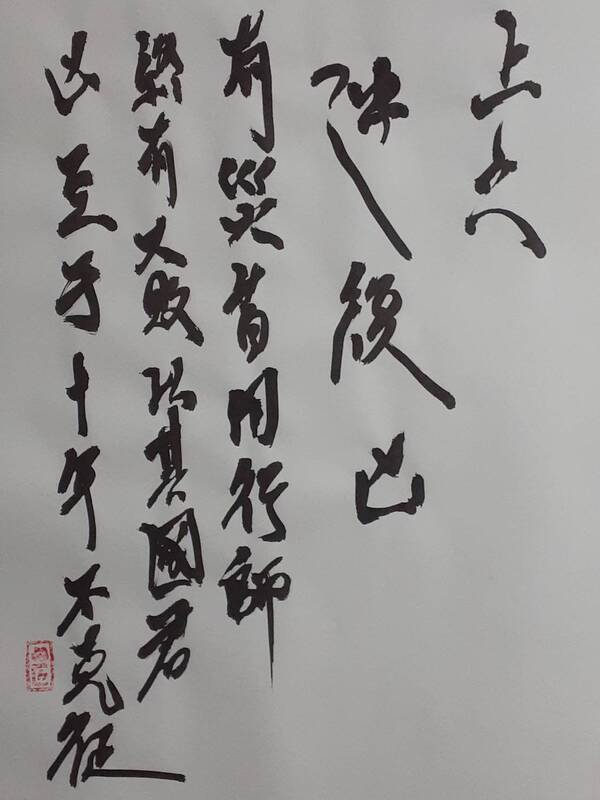 上六
迷復凶
有災眚用行師
終有大敗以其國君
凶至于十年不克征